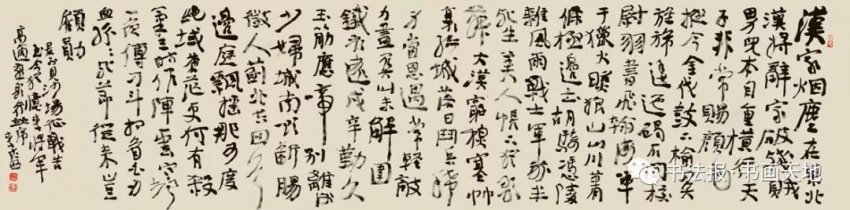 漢家烟塵在東北
漢將辭家破殘賊
男兒本自重橫行天
子非常賜顏色
摐金伐鼓下榆關
旌旆逶迤碣石間校
尉羽書飛瀚海單
于獵火照狼山山川蕭
條極邊土胡騎憑陵
雜風雨戰士軍前半
死生美人帳下猶歌
舞大漠窮秋塞草
腓孤城落日鬥兵稀
身當恩遇常輕敵
力盡關山未解圍
鐵衣遠戍辛勤久
玉筋應啼別離後
少婦城南欲斷腸
征人薊北空回首
邊庭飄颻那可度
絕域蒼茫更何有殺
氣三時作陣雲寒聲
一夜傳刁斗相看白刃
血紛紛死節從來豈
顧勳
君不見沙場征戰苦
至今猶憶李將軍
高適燕歌行
书法报·书画天地